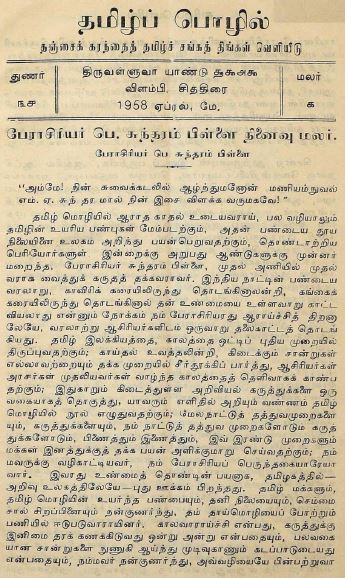 தமிழ்ப் பொழில்
தஞ்சைக் கரந்தைத் தமிழ்ச் சங்கத் திங்கள் வெளியீடு
துணர்
திருவள்ளுவர் யாண்டு ௨௲௯௮௯
மலர்
௩௪
விளம்பி, சித்திரை
1958 ஏப்ரல், மே.
க
பேராசிரியர் பெ. சுந்தரம் பிள்ளை நினைவு மலர்.
பேராசிரியர் பெ சுந்தரம் பிள்ளை
"அம்மே! நின் சுவைக்கடலில் ஆழ்ந்துமனோன் மணியமற்றுவல்
எம். ஏ. சுந் தர மால் நின் இசை விளக்க வருமகவே!"
தமிழ் மொழியில் ஆராத காதல் உடையவராய், பல வழியாலும்
தமிழின் உயரிய பண்புகள் மேம்படற்கும், அதன் பண்டைய தூய
நிலையினை உலகம் அறிந்து பயன்பெறுவதற்கும், தொண்டாற்றிய
பெரியோர்களுள் இன்றைக்கு அறுபது ஆண்டுகளுக்கு முன்னர்
மறைந்த, பேராசிரியர் சுந்தரம் பிள்ளை, முதல் அணியில் முதல்
வராக வைத்துக் கருதத் தக்கவராவர். இந்திய நாட்டின் பண்டைய
வரலாறு, காவிரிக் கரையிலிருந்து தொடங்கினாலன்றி, கங்கைக்
கரையிலிருந்து தொடங்கினால் தன் உண்மையை உள்ளவாறு காட்ட
வியலாது என்னும் நோக்கம் நம் பேராசிரியரது ஆராய்ச்சித் திறனா
லேயே, வரலாற்று ஆசிரியர்களிடம் ஒருவாறு தலைகாட்டத் தொடங்
கியது. தமிழ் இலக்கியத்தை, காலத்தை ஒட்டிப் புதிய முறையில்
திருப்புவதற்கும்; காய்தல் உவத்தலின்றி, கிடைக்கும் சான்றுகள்
எல்லாவற்றையும் தக்க முறையில் சீர்தூக்கிப் பார்த்து, ஆசிரியர்கள்
அரசர்கள் முதலியவர்கள் வாழ்ந்த காலத்தைத் தெளிவாகக் காண்ப
தற்கும்; இதுகாறும் கிடைத்துள்ள அறிவியல் கருத்துக்களை ஒரு
வகையாகத் தொகுத்து, யாவரும் எளிதில் அறியும் வண்ணம் தமிழ்
மொழியில் நூல் எழுதுவதற்கும்; மேலைநாட்டுத் தத்துவமுறைகளை
யும், கருத்துக்களையும், நம் நாட்டுத் தத்துவ முறைகளோடும் கருத்
துக்களோடும், பிணைத்தும் இணைத்தும், இவ் இரண்டு முறைகளும்
மக்கள் இனத்துக்குத் தக்க பயன் அளிக்குமாறு செய்வதற்கும்; நம்
மவருக்கு வழிகாட்டியவர், நம் பேராசிரியப் பெருந்தகையாரேயா
வார். இவரது உண்மைத் தொண்டின் பயனாக, தமிழகத்தில்—
அறிவு உலகத்திலேயே—புது ஊக்கம் பிறந்தது. தமிழ் மக்களும்,
தமிழ் மொழியின் உயர்ந்த பண்பையும், தனி நிலையையும், செம்மை
சால் சிறப்பினையும் நன்குணர்ந்து, தம் தாய்மொழியைப் போற்றும்
பணியில் ஈடுபடுவாராயினர். காலவாராய்ச்சி என்பது, கருத்துக்கு
இனிமை தரக் கணக்கிடுவது ஒன்று அன்று என்பதையும், பலவகை
யான சான்றுகளை நுணுகி ஆய்ந்து முடிவுகாணும் கடப்பாடுடையது
என்பதையும், நம்மவர் நன்குணர்ந்து, அவ்வழியையே பின்பற்றுவா